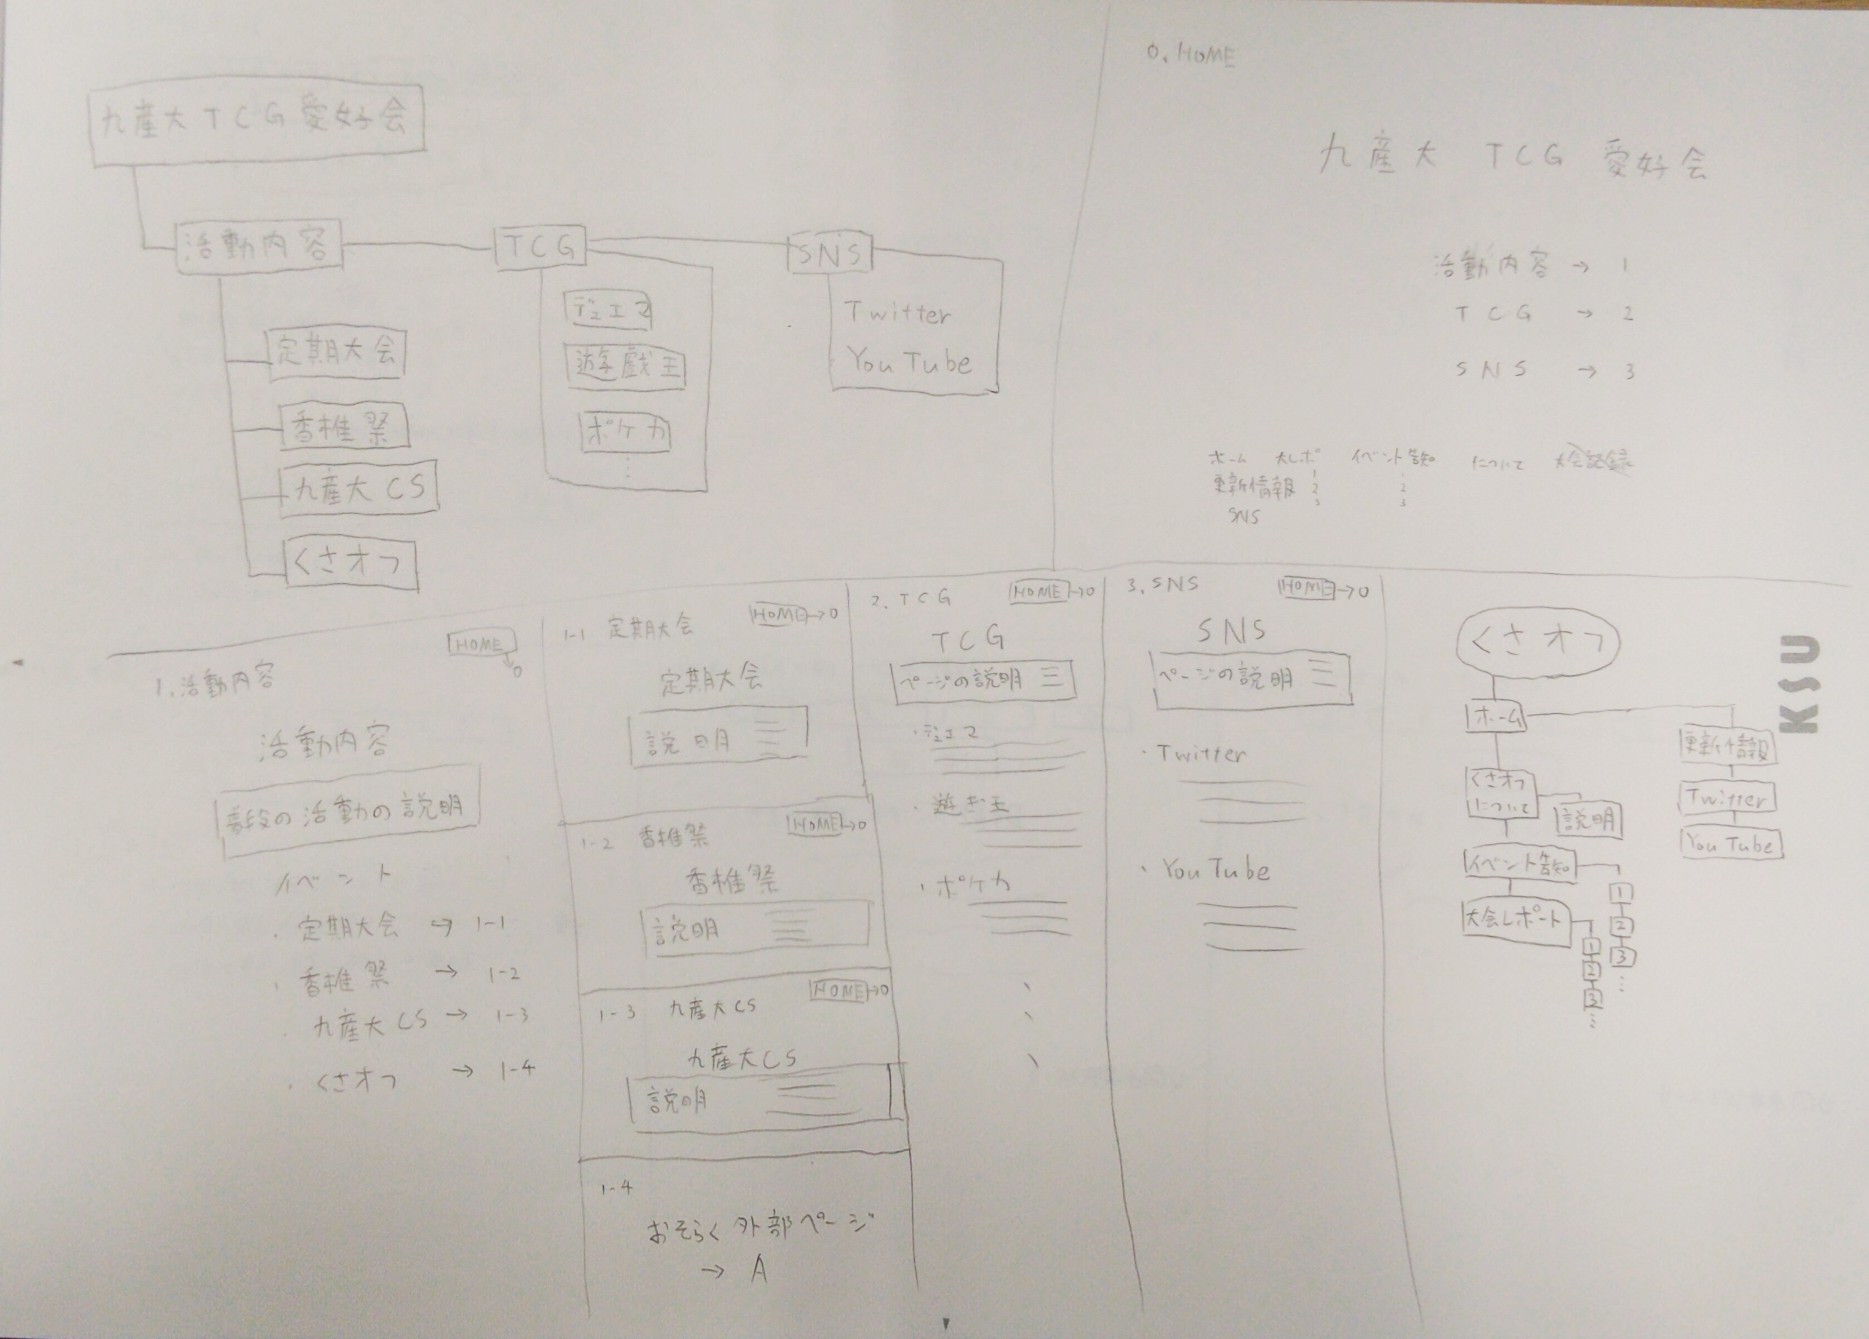 九産大TCG愛好会
活動内容
TCG
SNS
定期大会
香椎祭
九産大CS
くさオフ
デュエマ
遊戯王
ポケカ
Twitter
YouTube
0. HOME
九産大 TCG 愛好会
活動内容 → 1
TCG → 2
SNS → 3
ホーム 大レポ イベント告知 について 大会記録
更新情報
SNS
1
2
3
2
3
1. 活動内容
HOME → 0
活動内容
普段の活動の説明
イベント
・定期大会 → 1-1
・香椎祭 → 1-2
・九産大CS → 1-3
・くさオフ → 1-4
1-1 定期大会
HOME → 0
定期大会
説明
1-2 香椎祭
HOME → 0
香椎祭
説明
1-3 九産大CS
HOME → 0
九産大CS
説明
1-4
おそらく外部ページ
→ A
2. TCG
HOME → 0
TCG
ページの説明
・デュエマ
・遊ぎ王
・ポケカ
3. SNS
HOME → 0
SNS
ページの説明
・Twitter
・YouTube
くさオフ
ホーム
くさオフ
について
説明
イベント告知
1
2
3
大会レポート
1
2
3
更新情報
Twitter
YouTube
KSU